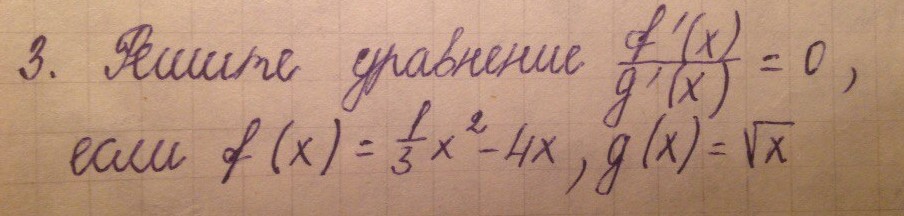 3. Решите уравнение f'(x)/g'(x) = 0,
если f(x) = 1/3 x² - 4x, g(x) = √x